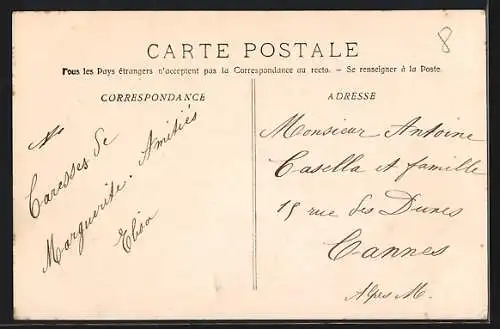 8
CARTE POSTALE
Tous les Pays étrangers n'acceptent pas la Correspondance au recto. - Se renseigner à la Poste.
CORRESPONDANCE
Caresses de
Marguerite. Amitiés
Elisa
ADRESSE
Monsieur Antoine
Casella et famille
15 rue des Dunes
Cannes
Alpes M.